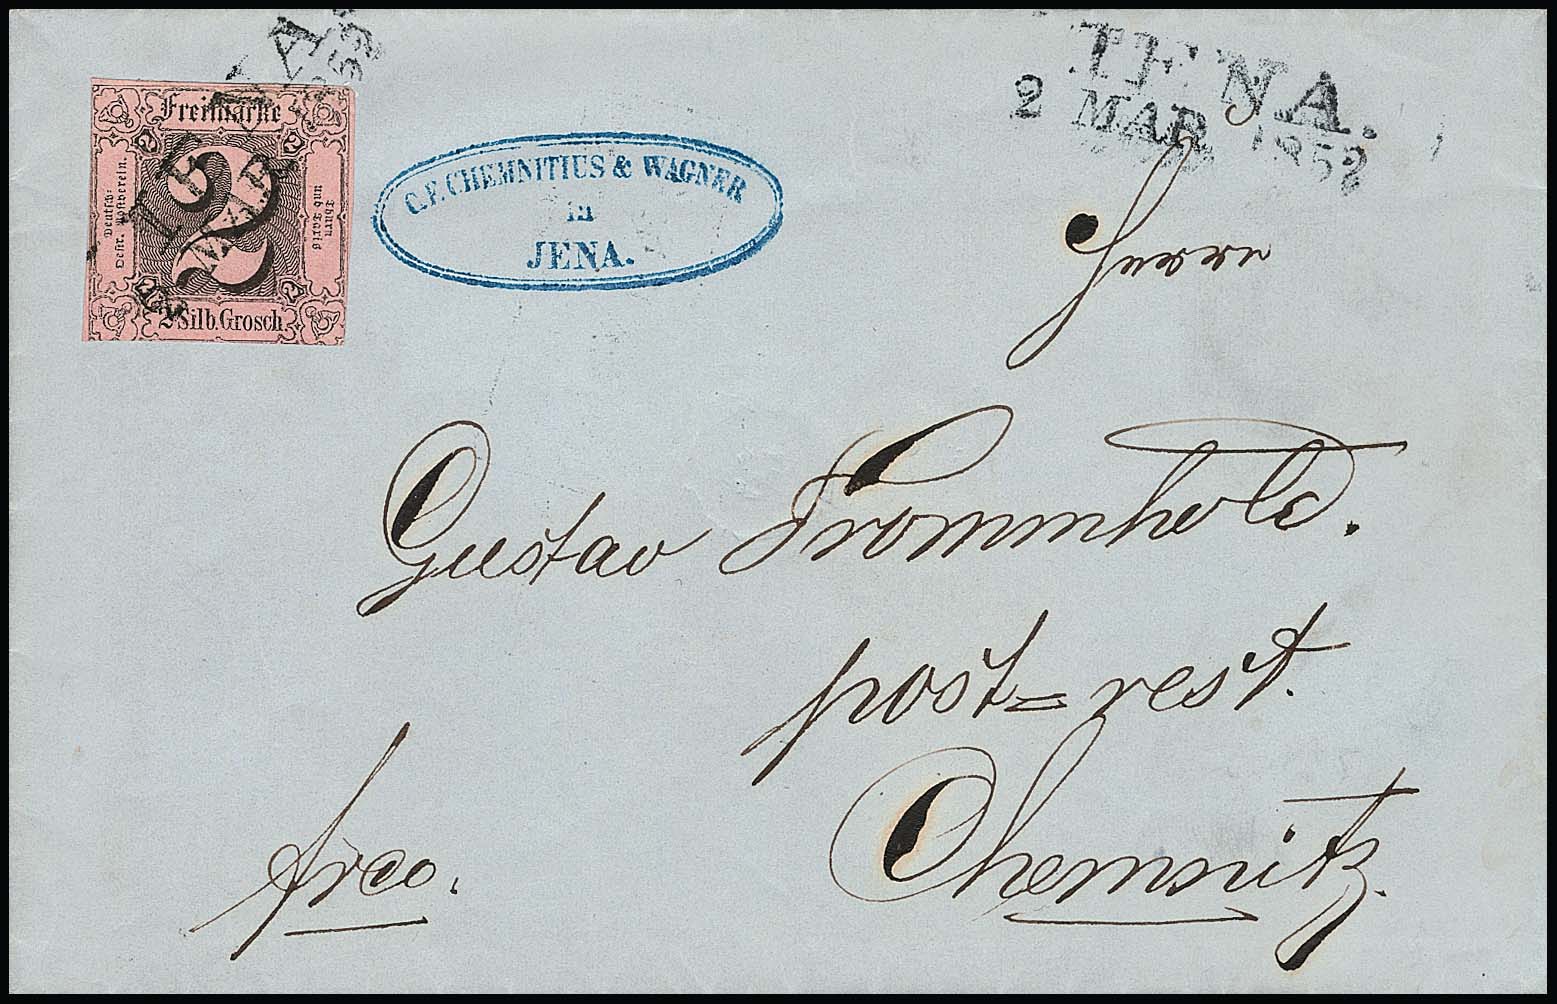 JENA.
2 MAR 1852
Freimarke
2
2
2
Deutsch-
Oestr. Postverein.
Thurn
und Taxis
2
2
2 Silb. Grosch.
JENA
MAR
C. F. CHEMNITIUS & WAGNER
in
JENA.
Herrn
Gustav Frommhold.
post=rest.
Chemnitz.
frco.